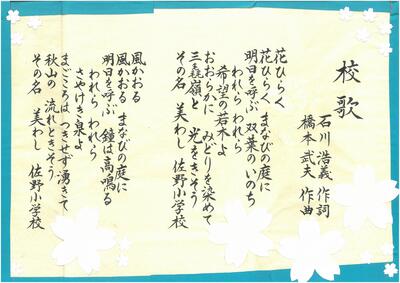 校歌
石川 浩義 作詞
橋本 武夫 作曲
花ひらく
花ひらく まなびの庭に
明日を呼ぶ 双葉のいのち
われら われら
希望の若木よ
おおらかに みどりを染めて
三毳嶺と 光をきそう
その名 美わし 佐野小学校
風かおる
風かおる まなびの庭に
明日を呼ぶ 鐘は高鳴る
われら われら
さやけき泉よ
まごころは つきせず湧きて
秋山の 流れときそう
その名 美わし 佐野小学校